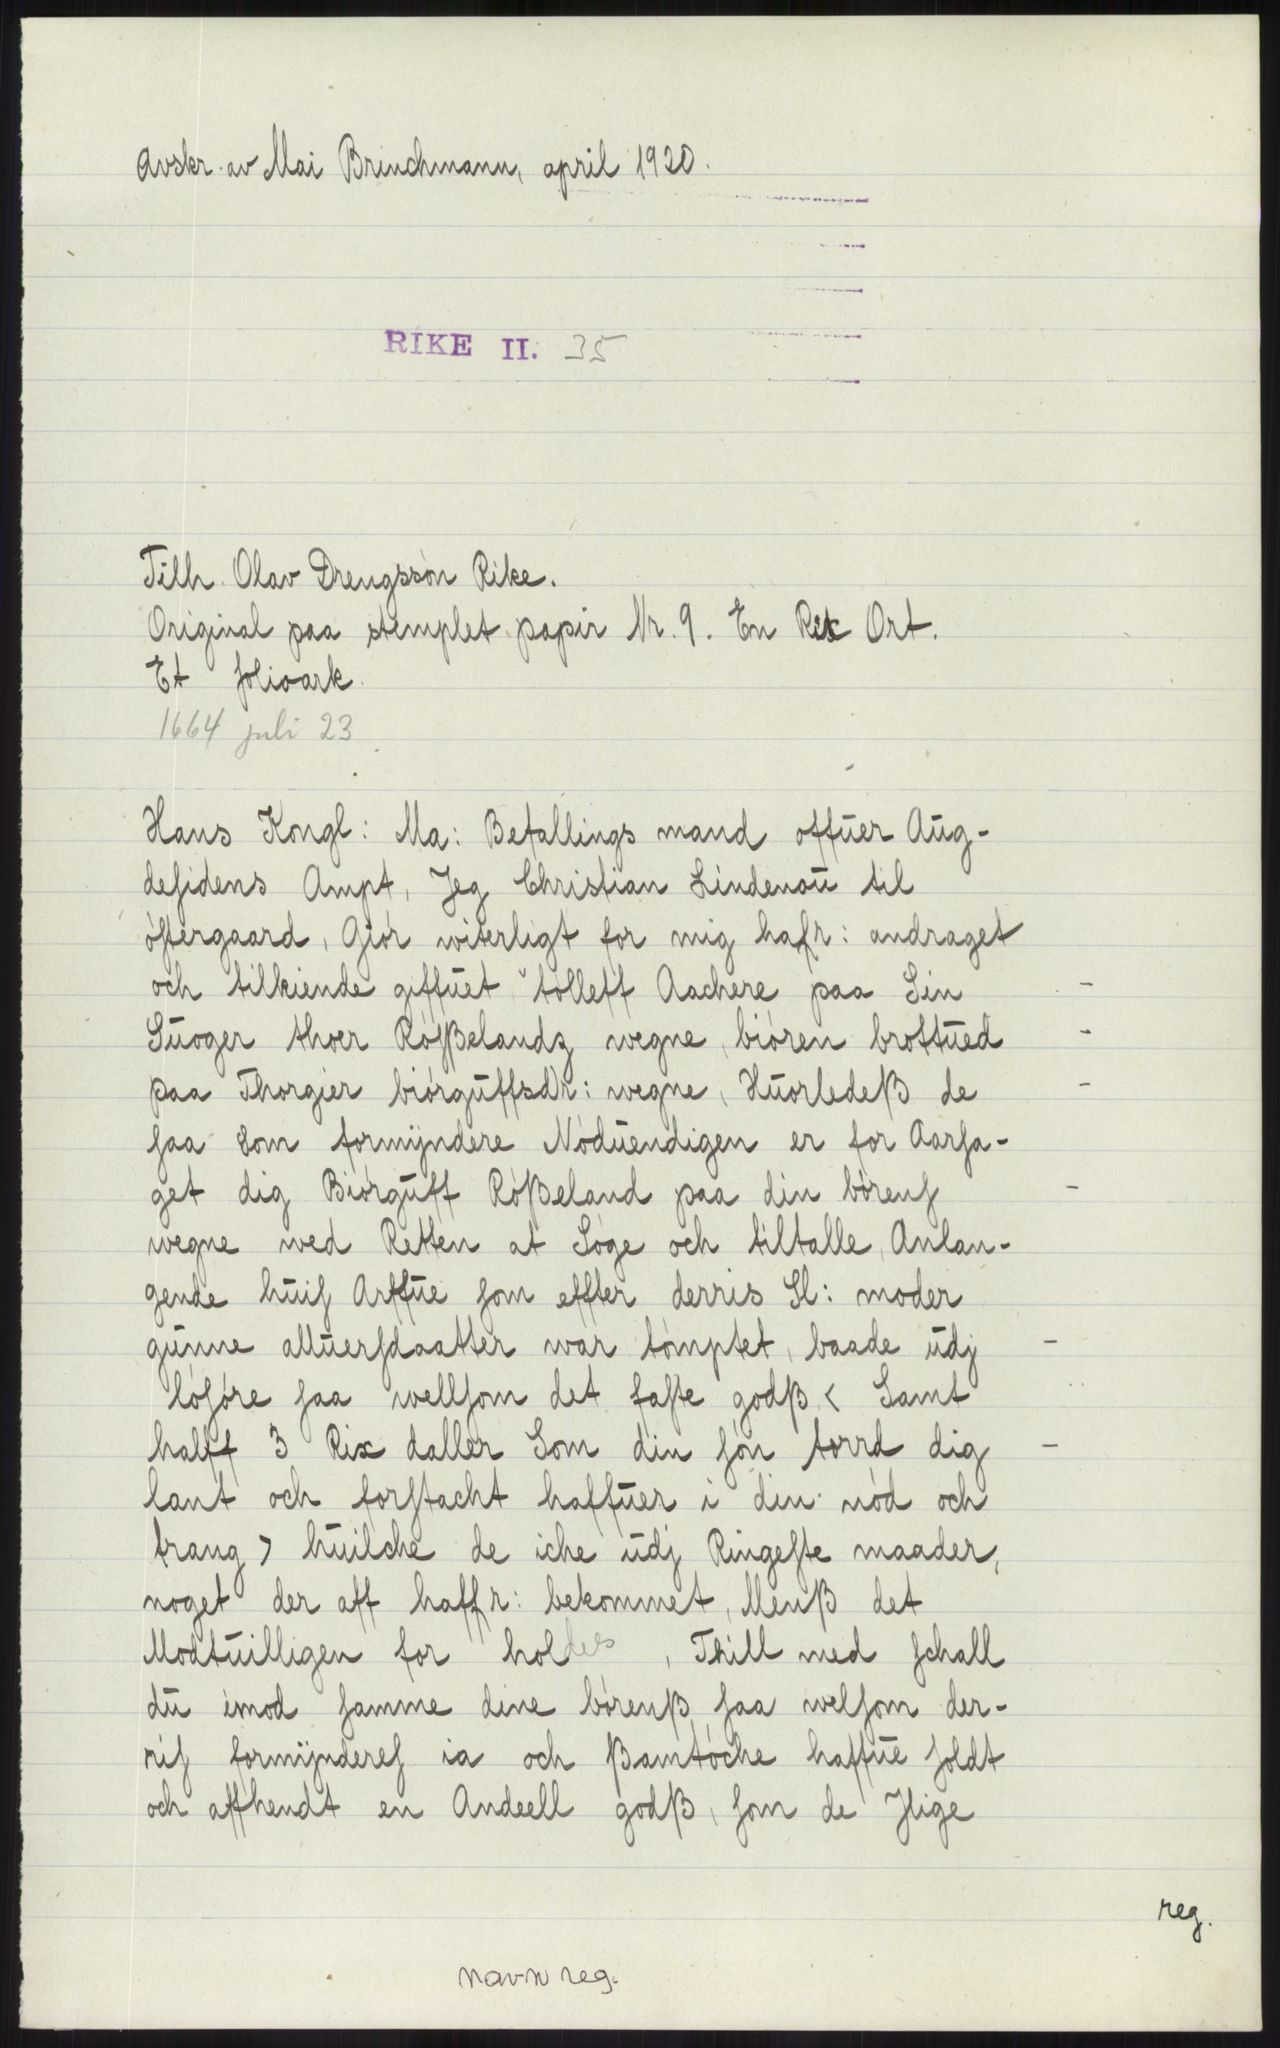 Avskr. av Mai Brinchmann, april 1920.
RIKE II. 35
Tilh. Olav Drengsson Rike.
Original paa stemplet papir Nr. 9. En Rix Ort.
Et folioark.
1664 juli 23
Hans Kongl: Ma: Befallings mand offuer Aug-
desidens Ampt, Jeg Christian Lindenou til
østergaard, Giør witerligt for mig hafr: andraget
och tilkiende giffuet tolleff Aachere paa Sin
Suoger thoer Røsßelandz wegne, biøren brottued
paa Thorgier biørguffsdr: wegne, Huorledeß de
saa Som formijndere Nøduendigen er for Aarsa-
get dig Biørguff Røßeland paa din børens
wegne wed Retten at Søge och tiltalle, Anlan-
gende huis Arffue som effter derris Sl: moder
gunne alluersdaatter war tømptet, baade udj
løsøre saa wellsom det faste godß < Samt
halff 3 Rix daller Som din søn torrd dig
lant och forstacht haffuer i din nød och
trang > huilche de iche udj Ringeste maader,
noget der aff haffr: bekommet, Menß det
Modtuilligen for holdes, Thill med schall
du imod samme dine børenß saa welsom der-
ris formijnderes ia och ßamtøche haffue soldt
och affhendt en Andeell godß, som de Jlige
reg.
navn reg.